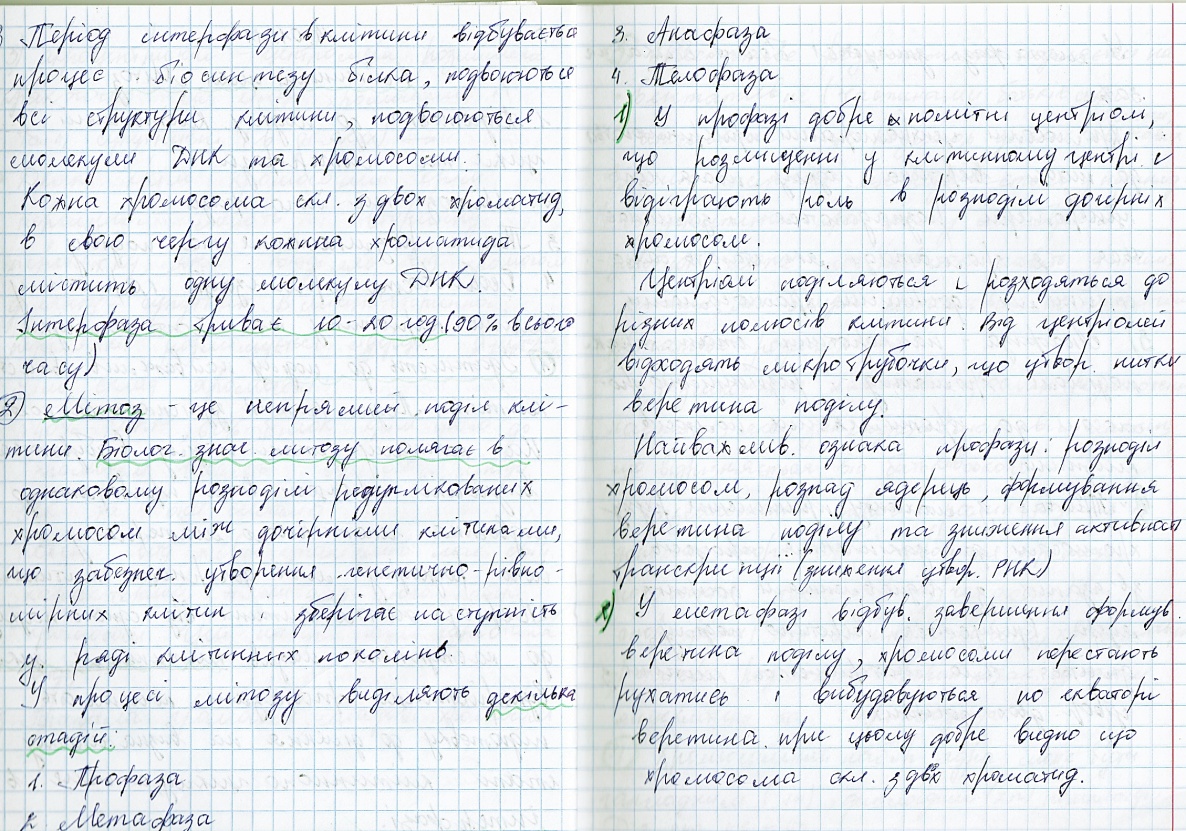 З Період інтерфази в клітини відбувається
процес біосинтезу білка, подвоюються
всі структури клітини, подвоюються
молекули ДНК та хромосоми.
Кожна хромосома скл. з двох хроматид,
в свою чергу кожна хроматида
містить одну молекулу ДНК.
Інтерфаза - триває 10-20 год. (90% всього
часу)
2) Мітоз - це непрямий поділ клі-
тини. Біолог. знач. мітозу полягає в
однаковому розподілі редуплікованих
хромосом між дочірніми клітинами,
що забезпеч. утворення генетично-рівно-
мірних клітин і зберігає наступність
у ряді клітинних поколінь.
У процесі мітозу виділяють декілька
стадій:
1. Профаза
2. Метафаза
3. Анафаза
4. Телофаза
1) У профазі добре помітні центріолі,
що розміщенні у клітинному центрі і
відіграють роль в розподілі дочірніх
хромосом.
Центріолі поділяються і розходяться до
різних полюсів клітини. Від центріолей
відходять микротрубочки, що утвор. нитки
веретина поділу.
Найважлив. ознака профази: розподіл
хромосом, розпад ядерець, формування
веретина поділу та зниження активност
транскрипції (зниження утвор. РНК)
2) У метафазі відбув. завершення формув.
веретина поділу, хромосоми перестають
рухатись і вибудовуються по екваторі
веретина. при цьому добре видно що
хромосома скл. з двх хроматид.